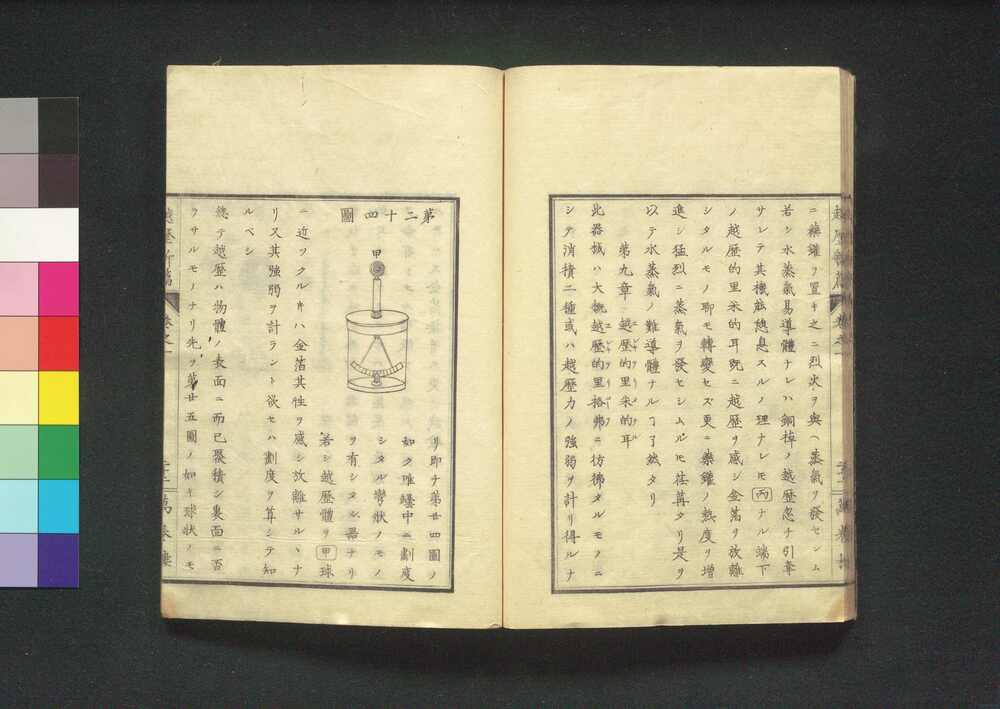 ニ藥罐ヲ置キ之ニ烈火ヲ與ヘ蒸氣ヲ發セシム
若シ水蒸氣易導體ナレハ銅棹ノ越歴忽チ引奪
サレテ其機能熄息スルノ理ナレモ丙ナル端下
ノ越歴的里釆的耳既ニ越歴ヲ感シ金箔ヲ放離
シタルモノ聊モ轉變セズ更ニ藥罐ノ熱度ヲ增
進シ猛烈ニ蒸氣ヲ發セシムルモ荏苒タリ是ヲ
以テ水蒸氣ノ難導體ナルヿ了然タリ
第九章 越歴的里釆的耳
此器械ハ大抵越歴的里格弗ニ彷彿タルモノニ
シテ消積二種或ハ越歴力ノ強弱ヲ計リ得ルナ
第二十四圖
甲
リ即チ第廿四圖ノ
如ク硝罎中ニ劃度
シタル彎狀ノモノ
ヲ有シタル器ナリ
若シ越歴體ヲ甲球
ニ近ツクルキハ金箔其性ヲ感シ放離サルヽナ
リス其強弱ヲ計ラント欲セハ劃度ヲ算シテ知
ルベシ
總テ越歴ハ物體ノ表面ニ而已聚積シ裏面ニ否
ラサルモノナリ先ヲ第廿五圖ノ如キ球狀ノモ